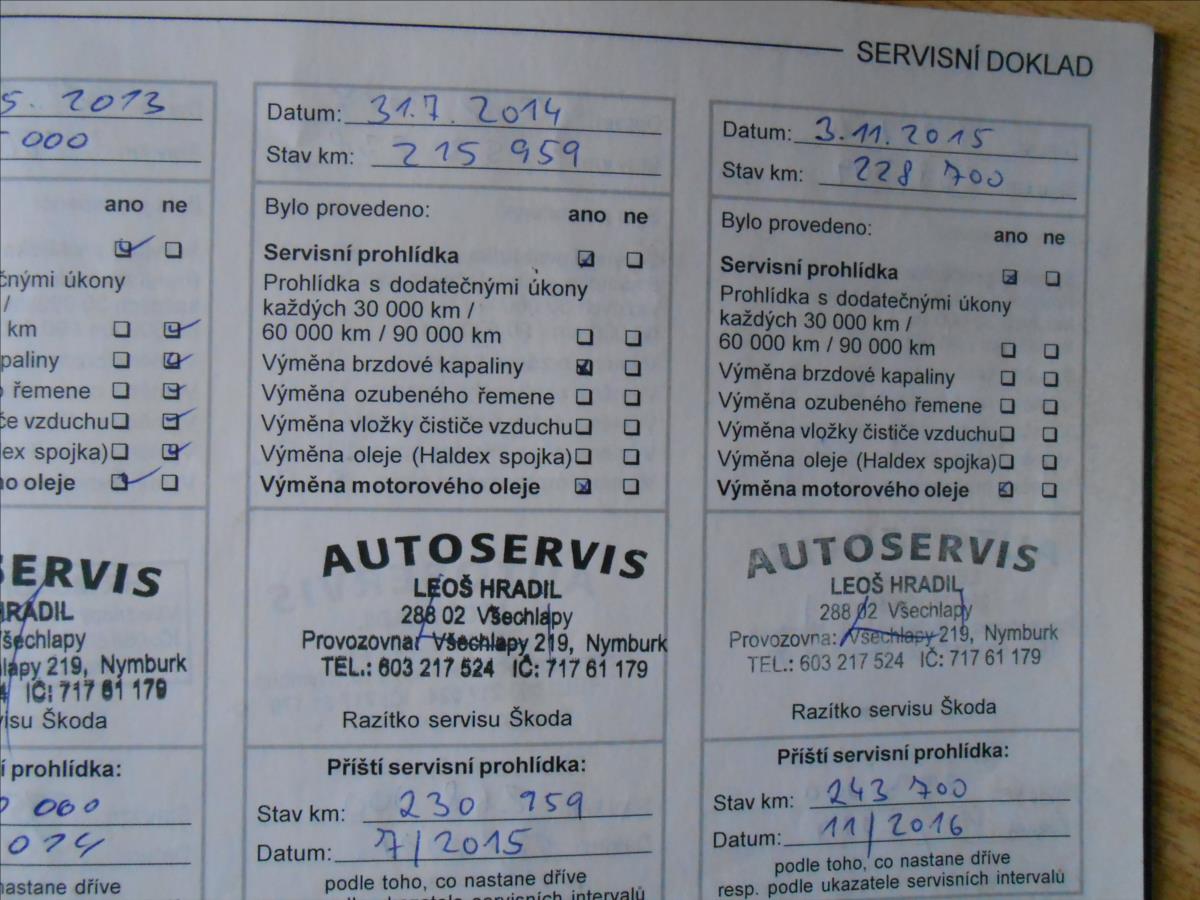 SERVISNÍ DOKLAD
5. 2013
000
ano ne
čnými úkony
/
km
paliny
o řemene
če vzduchu
dex spojka)
ho oleje
SERVIS
HRADIL
Všechlapy
lapy 219, Nymburk
4 IČ: 717 61 179
visu Škoda
í prohlídka:
0 000
2014
nastane dříve
Datum: 31.7. 2014
Stav km: 215 959
Bylo provedeno: ano ne
Servisní prohlídka
Prohlídka s dodatečnými úkony
každých 30 000 km /
60 000 km / 90 000 km
Výměna brzdové kapaliny
Výměna ozubeného řemene
Výměna vložky čističe vzduchu
Výměna oleje (Haldex spojka)
Výměna motorového oleje
AUTOSERVIS
LEOŠ HRADIL
288 02 Všechlapy
Provozovna: Všechlapy 219, Nymburk
TEL.: 603 217 524 IČ: 717 61 179
Razítko servisu Škoda
Příští servisní prohlídka:
Stav km: 230 959
Datum: 7/2015
podle toho, co nastane dříve
resp. podle ukazatele servisních intervalů
Datum: 3.11.2015
Stav km: 228 700
Bylo provedeno:
ano ne
Servisní prohlídka
Prohlídka s dodatečnými úkony
každých 30 000 km /
60 000 km / 90 000 km
Výměna brzdové kapaliny
Výměna ozubeného řemene
Výměna vložky čističe vzduchu
Výměna oleje (Haldex spojka)
Výměna motorového oleje
AUTOSERVIS
LEOŠ HRADIL
288 02 Všechlapy
Provozovna: Všechlapy 219, Nymburk
TEL.: 603 217 524 IČ: 717 61 179
Razítko servisu Škoda
Příští servisní prohlídka:
Stav km: 243 700
Datum: 11/2016
podle toho, co nastane dříve
resp. podle ukazatele servisních intervalů